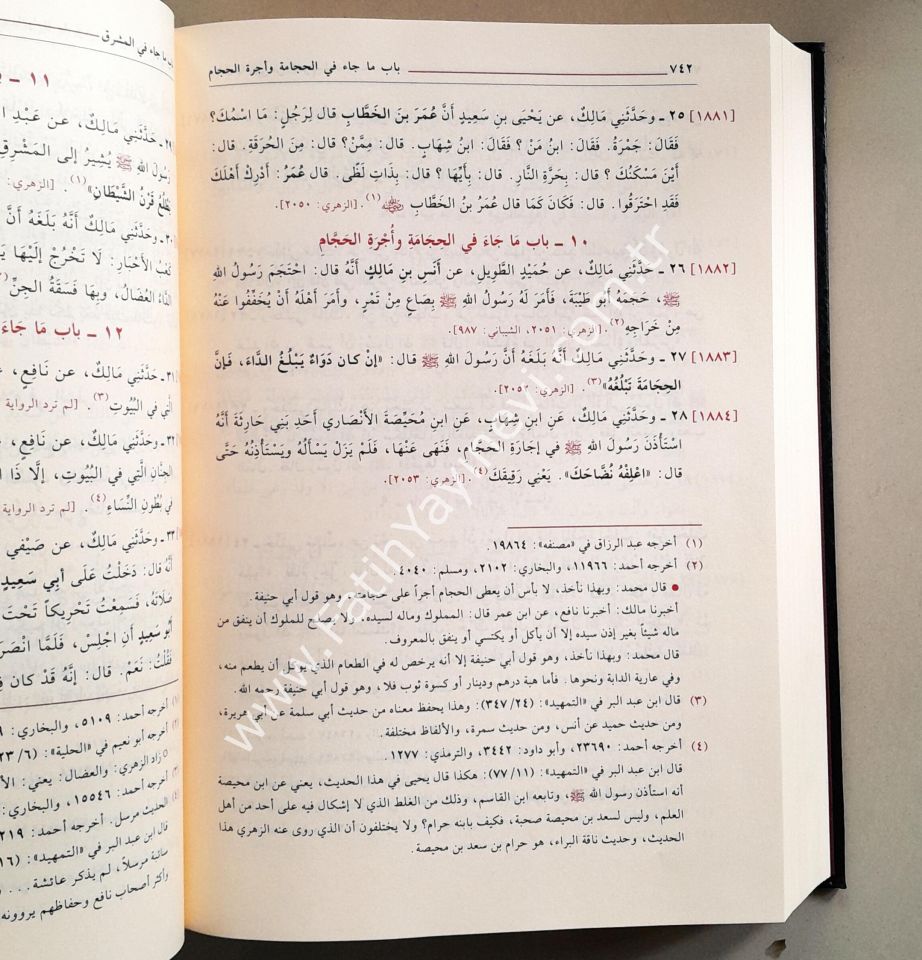 ٧٤٢ باب ما جاء في الحجامة وأجرة الحجام
[١٨٨١] ٢٥ ـ وحَدَّثَنِي مَالِكٌ، عَن يَحْيَى بنِ سَعِيدٍ أَنَّ عُمَرَ بنَ الخَطَّابِ قال لِرَجُلٍ: مَا اسْمُكَ؟
فَقَالَ: جَمْرَةُ. فَقَالَ: ابنُ مَنْ؟ فَقَالَ: ابنُ شِهَابٍ. قال: مِمَّنْ؟ قال: مِنَ الحُرَقَةِ. قال:
أَيْنَ مَسْكَنُكَ؟ قال: بِحَرَّةِ النَّارِ. قال: بِأَيِّهَا؟ قال: بِذَاتِ لَظًى. قال عُمَرُ: أَدْرِكْ أَهْلَكَ
فَقَدِ احْتَرَقُوا. قال: فَكَانَ كَمَا قال عُمَرُ بنُ الخَطَّابِ ﷺ(١). [الزهري: ٢٠٥٠].
١٠ ـ باب مَا جَاءَ في الحِجَامَةِ وأُجْرَةِ الحَجَّامِ
[١٨٨٢] ٢٦ ـ حَدَّثَنِي مَالِكٌ، عن حُمَيْدٍ الطَّوِيلِ، عن أَنَسِ بنِ مَالِكٍ أَنَّهُ قال: احْتَجَمَ رَسُولُ اللهِ
ﷺ، حَجَمَهُ أَبو طَيْبَةَ، فَأَمَرَ لَهُ رَسُولُ اللهِ ﷺ بِصَاعٍ مِنْ تَمْرٍ، وأَمَرَ أَهْلَهُ أَنْ يُخَفِّفُوا عَنْهُ
مِنْ خَرَاجِهِ(٢). [الزهري: ٢٠٥١، الشيباني: ٩٨٧].
[١٨٨٣] ٢٧ ـ وحَدَّثَنِي مَالِكٌ أَنَّهُ بَلَغَهُ أَنَّ رَسُولَ اللهِ ﷺ قال: «إِنْ كان دَوَاءٌ يَبْلُغُ الدَّاءَ، فَإِنَّ
الحِجَامَةَ تَبْلُغُهُ»(٣). [الزهري: ٢٠٥٢].
[١٨٨٤] ٢٨ ـ وحَدَّثَنِي مَالِكٌ، عَنِ ابنِ شِهَابٍ، عَنِ ابنِ مُحَيِّصَةَ الأَنْصَاري أَحَدِ بَنِي حَارِثَةَ أَنَّهُ
اسْتَأْذَنَ رَسُولَ اللهِ ﷺ في إِجَارَةِ الحَجَّامِ، فَنَهَى عَنْهَا، فَلَمْ يَزَلْ يَسْأَلُهُ ويَسْتَأْذِنُهُ حَتَّى
قال: «اعْلِفْهُ نُضَّاحَكَ». يَعْنِي رَقِيقَكَ(٤). [الزهري: ٢٠٥٣].
(١) أخرجه عبد الرزاق في «مصنفه»: ١٩٨٦٤.
(٢) أخرجه أحمد: ١١٩٦٦، والبخاري: ٢١٠٢، ومسلم: ٤٠٤٠.
● قال محمد: وبهذا نأخذ، لا بأس أن يعطى الحجام أجراً على حجامته، وهو قول أبي حنيفة.
أخبرنا مالك: أخبرنا نافع، عن ابن عمر قال: المملوك وماله لسيده، ولا يصلح للملوك أن ينفق من
ماله شيئاً بغير إذن سيده إلا أن يأكل أو يكتسي أو ينفق بالمعروف.
قال محمد: وبهذا نأخذ، وهو قول أبي حنيفة إلا أنه يرخص له في الطعام الذي يوكل أن يطعم منه،
وفي عارية الدابة ونحوها. فأما هبة درهم ودينار أو كسوة ثوب فلا، وهو قول أبي حنيفة رحمه الله.
(٣) قال ابن عبد البر في «التمهيد»: (٣٤٧/٢٤): وهذا يحفظ معناه من حديث أبي سلمة عن أبي هريرة،
ومن حديث حميد عن أنس، ومن حديث سمرة، والألفاظ مختلفة.
(٤) أخرجه أحمد: ٢٣٦٩٠، وأبو داود: ٣٤٤٢، والترمذي: ١٢٧٧.
قال ابن عبد البر في «التمهيد»: (٧٧/١١): هكذا قال يحيى في هذا الحديث، يعني عن ابن محيصة
أنه استأذن رسول الله ﷺ، وتابعه ابن القاسم، وذلك من الغلط الذي لا إشكال فيه على أحد من أهل
العلم، وليس لسعد بن محيصة صحبة، فكيف بابنه حرام؟ ولا يختلفون أن الذي روى عنه الزهري هذا
الحديث، وحديث ناقة البراء، هو حرام بن سعد بن محيصة.
باب ما جاء في المشرق
١١ ـ
٢٩ـ حَدَّثَنِي مَالِكٌ، عن عَبْدِ
رَسُولَ اللهِ ﷺ يُشِيرُ إلى المَشْرِقِ
يَطْلُعُ قَرْنُ الشَّيْطَانِ»(١). [الزهري:
٣٠ـ وحَدَّثَنِي مَالِكٌ أَنَّهُ بَلَغَهُ أَنَّ
كَعْبُ الأَحْبَارِ: لَا تَخْرُجْ إِلَيْهَا
الدَّاءُ العُضَالُ، وبِهَا فَسَقَةُ الجِنِّ
١٢ ـ باب مَا جَاءَ
٣١ـ حَدَّثَنِي مَالِكٌ، عن نَافِعٍ،
الَّتِي في البُيُوتِ(٣). [لم ترد الرواية
٣٢ـ وحَدَّثَنِي مَالِكٌ، عن نَافِعٍ،
الجِنَّانِ الَّتِي في البُيُوتِ، إِلَّا ذَا
في بُطُونِ النِّسَاءِ(٤). [لم ترد الرواية
٣٣ـ وحَدَّثَنِي مَالِكٌ، عن صَيْفِي
أَنَّهُ قال: دَخَلْتُ عَلَى أَبِي سَعِيدٍ
صَلَاتَهُ، فَسَمِعْتُ تَحْرِيكاً تَحْتَ
أَبُو سَعِيدٍ أَنِ اجْلِسْ، فَلَمَّا
فَقُلْتُ: نَعَمْ. قال: إِنَّهُ قَدْ كان
(١) أخرجه أحمد: ٥١٠٩، والبخاري:
(٢) أخرجه أبو نعيم في «الحلية»:
زاد الزهري: والعضال: يعني:
(٣) أخرجه أحمد: ١٥٥٤٦، والبخاري:
(٤) الحديث مرسل. أخرجه أحمد:
قال ابن عبد البر في «التمهيد»:
سائبة مرسلاً، لم يذكر عائشة...
وأكثر أصحاب نافع وحفاظهم يروونه
www.FatihYayinevi.com.tr